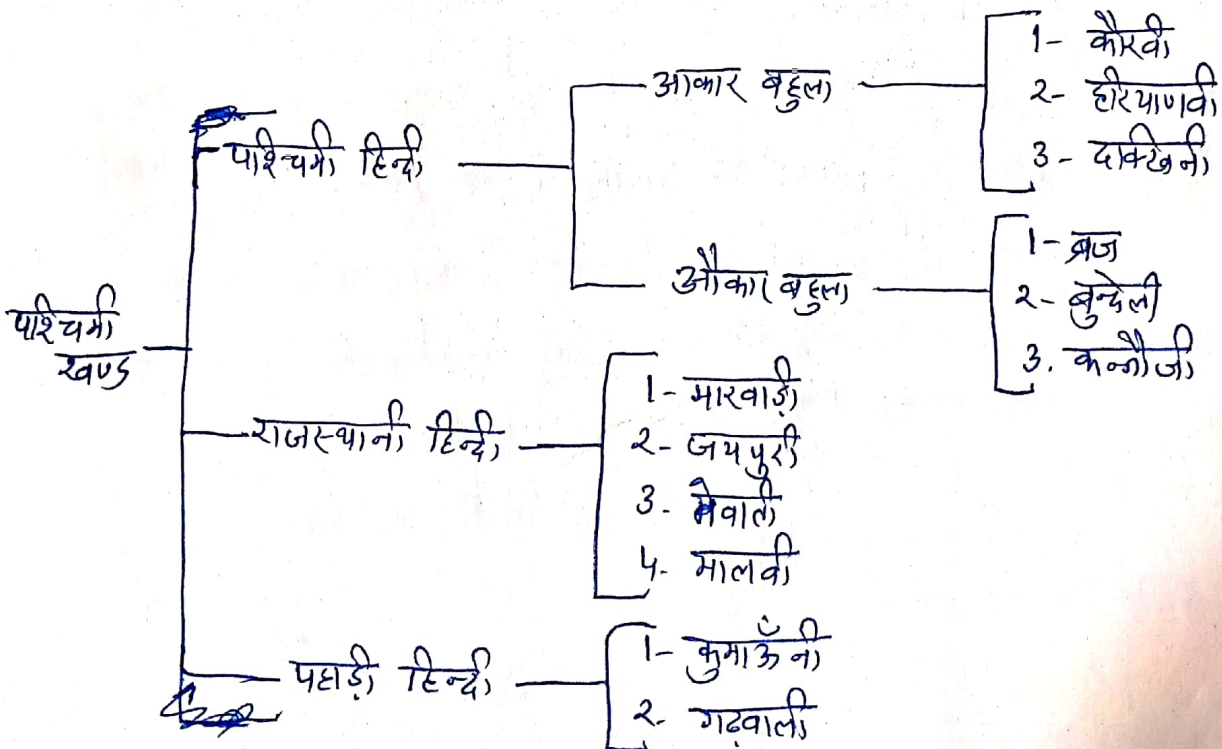 पश्चिमी खण्ड
पश्चिमी हिन्दी
आकार बहुला
1- कौरवी
2- हरियाणवी
3- दक्खिनी
औकार बहुला
1- ब्रज
2- बुन्देली
3. कन्नौजी
राजस्थानी हिन्दी
1- मारवाड़ी
2- जयपुरी
3- मेवाती
4- मालवी
पहाड़ी हिन्दी
1- कुमाऊँनी
2- गढ़वाली